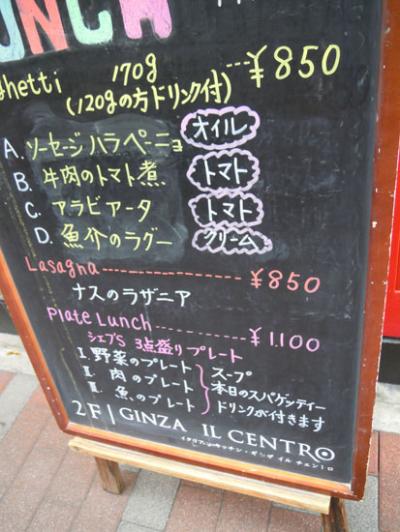 UNCH
ghetti 170g ¥850
(120gの方ドリンク付)
A. ソーセージハラペーニョ オイル
B. 牛肉のトマト煮 トマト
C. アラビアータ トマト
D. 魚介のラグー クリーム
Lasagna ¥850
ナスのラザニア
Plate Lunch ¥1.100
シェフ's 3点盛りプレート
I. 野菜のプレート スープ
II. 肉のプレート 本日のスパゲッティー
III. 魚のプレート ドリンクが付きます
2F | GINZA IL CENTRO
イタリアン・キッチン・ギンザ イル チェントロ